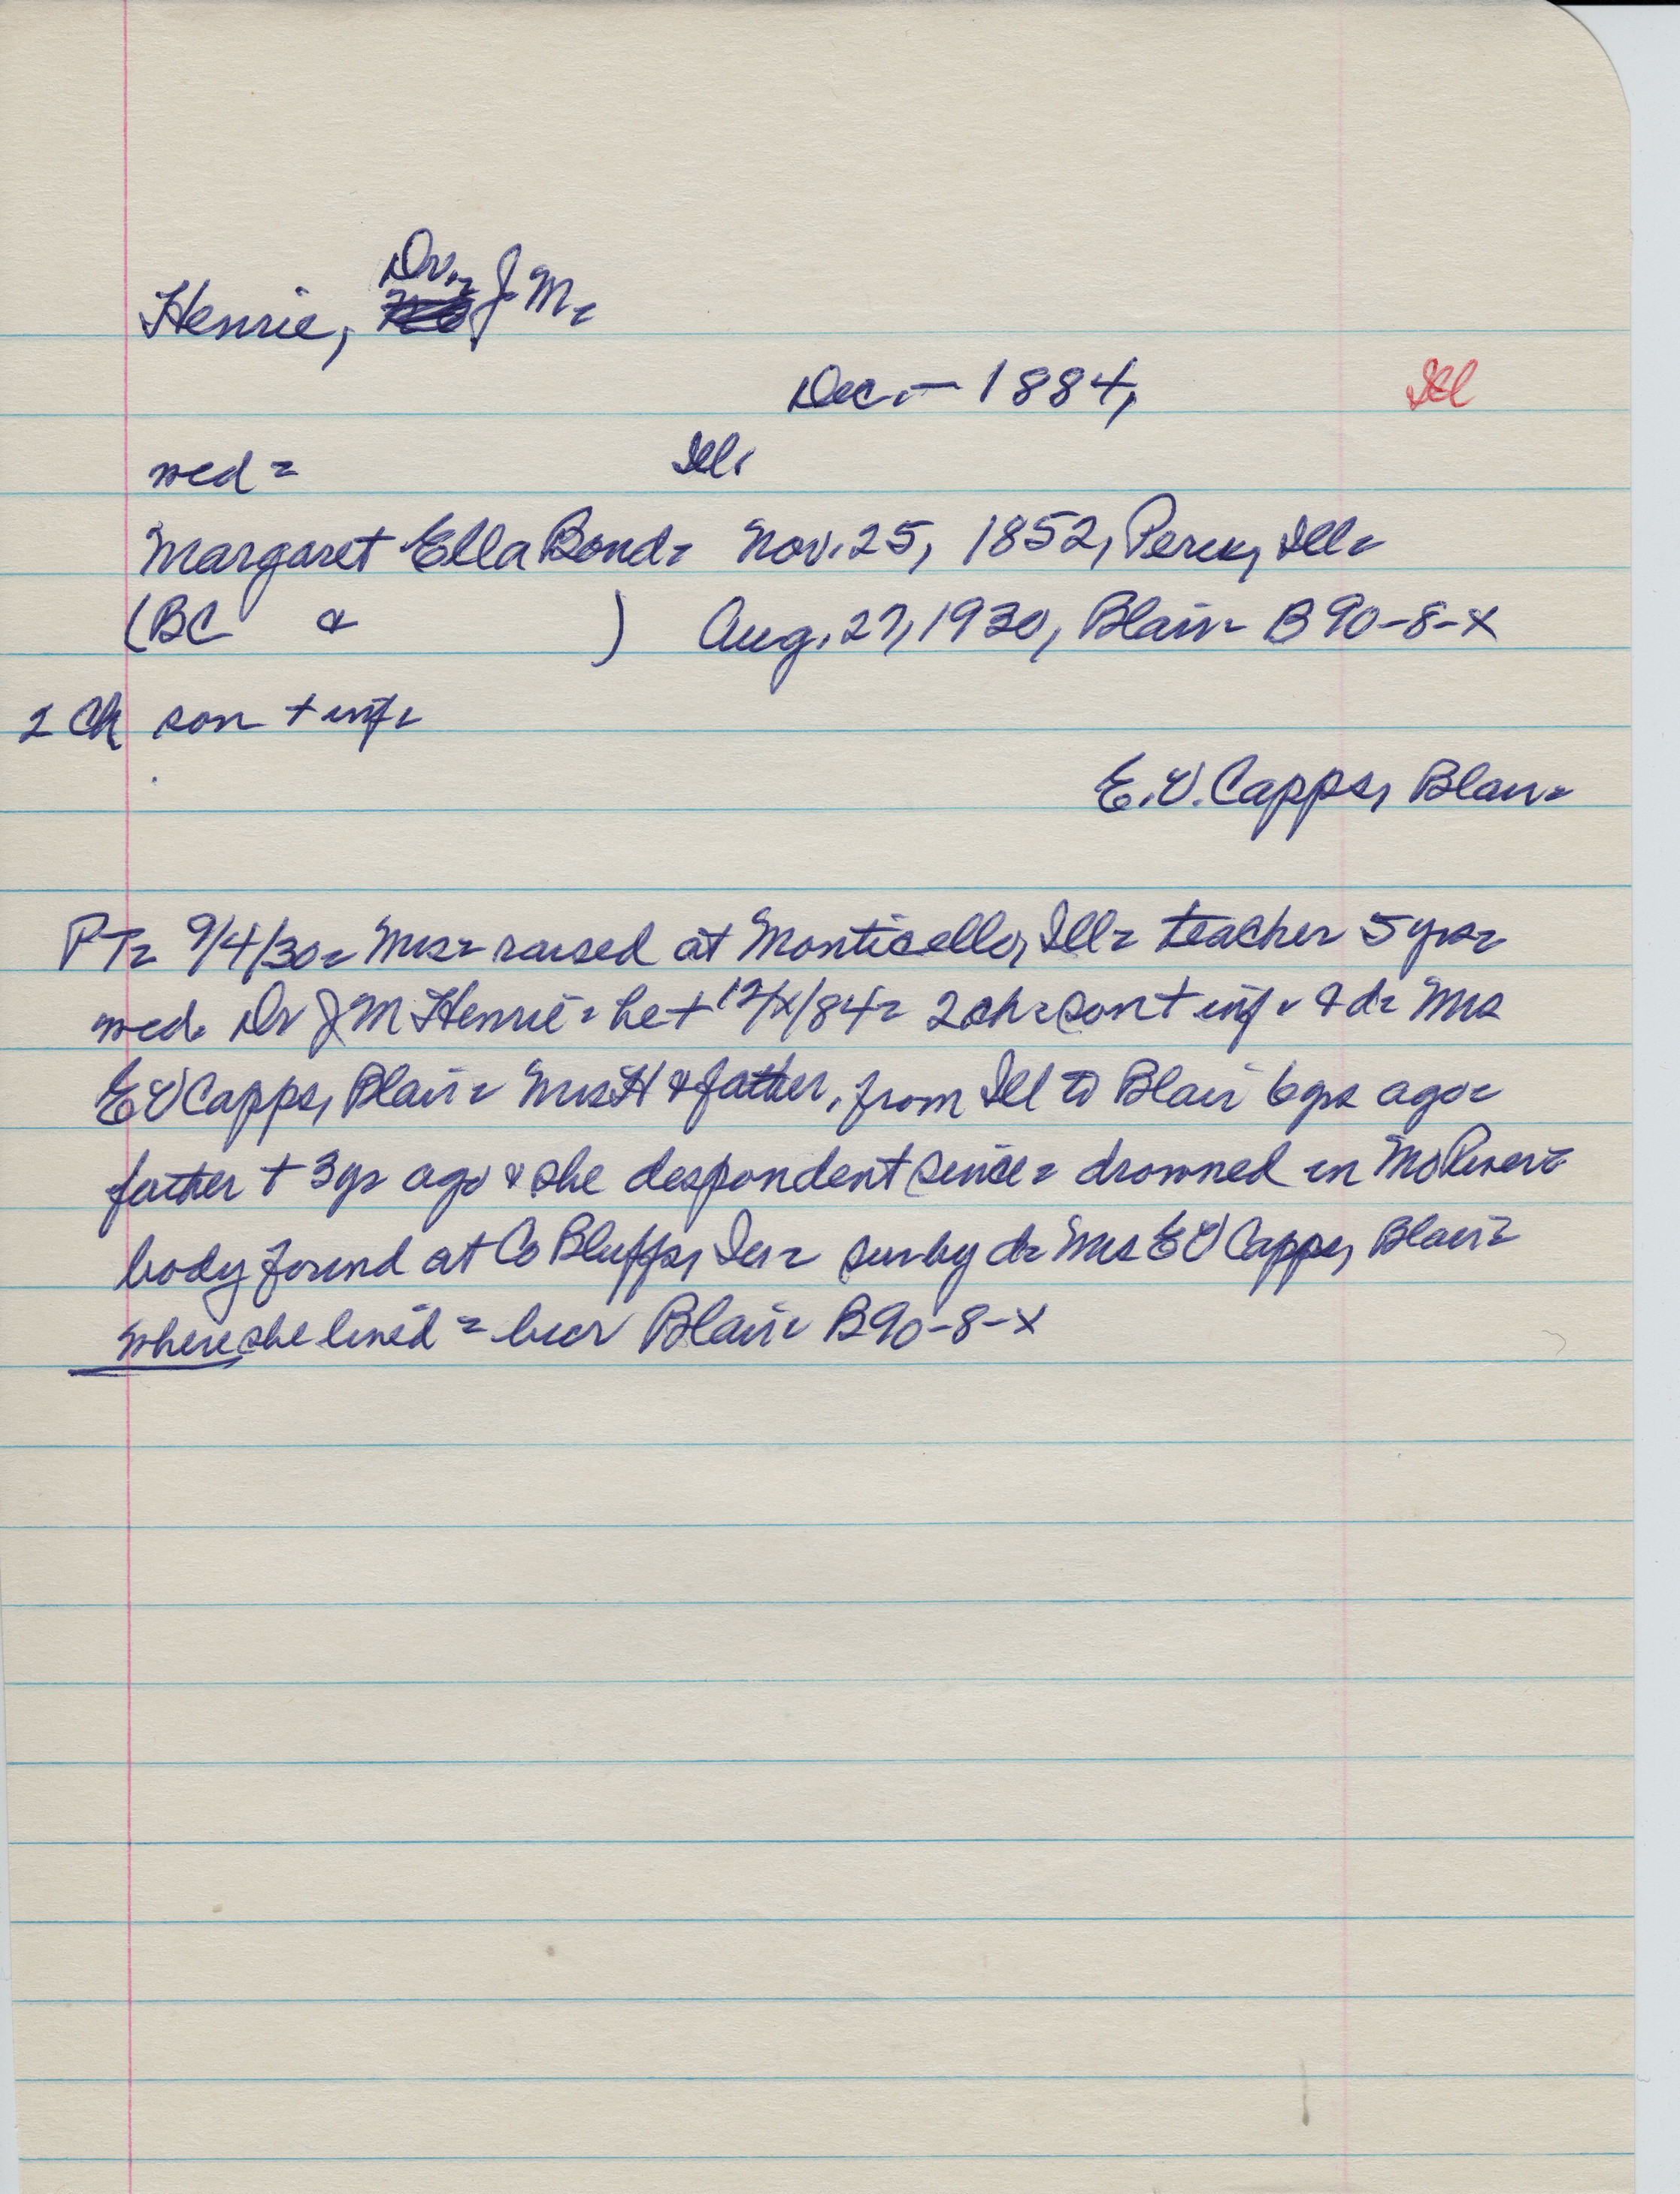 Henrie, Dr. J M.
Dec. — 1884, Ill
wed = Ill.
Margaret Ella Bond = Nov. 25, 1852, Perry, Ill =
(BC & ) Aug. 27, 1930, Blair - B90-8-X
2 Ch son + inf.
E.V. Capps, Blair =
PT = 9/4/30 = Mrs = raised at Monticello, Ill = teacher 5 yrs =
wed. Dr J M Henrie = he + 12/x/84 = 2 ch = son + inf. & d = Mrs
EV Capps, Blair = Mrs H & father, from Ill to Blair 6 yrs ago =
father + 3 yr ago & she despondent since = drowned in Mo River =
body found at Co Bluffs, Ia = sur by d = Mrs EV Capps, Blair =
where she lived = bur Blair. B90-8-X